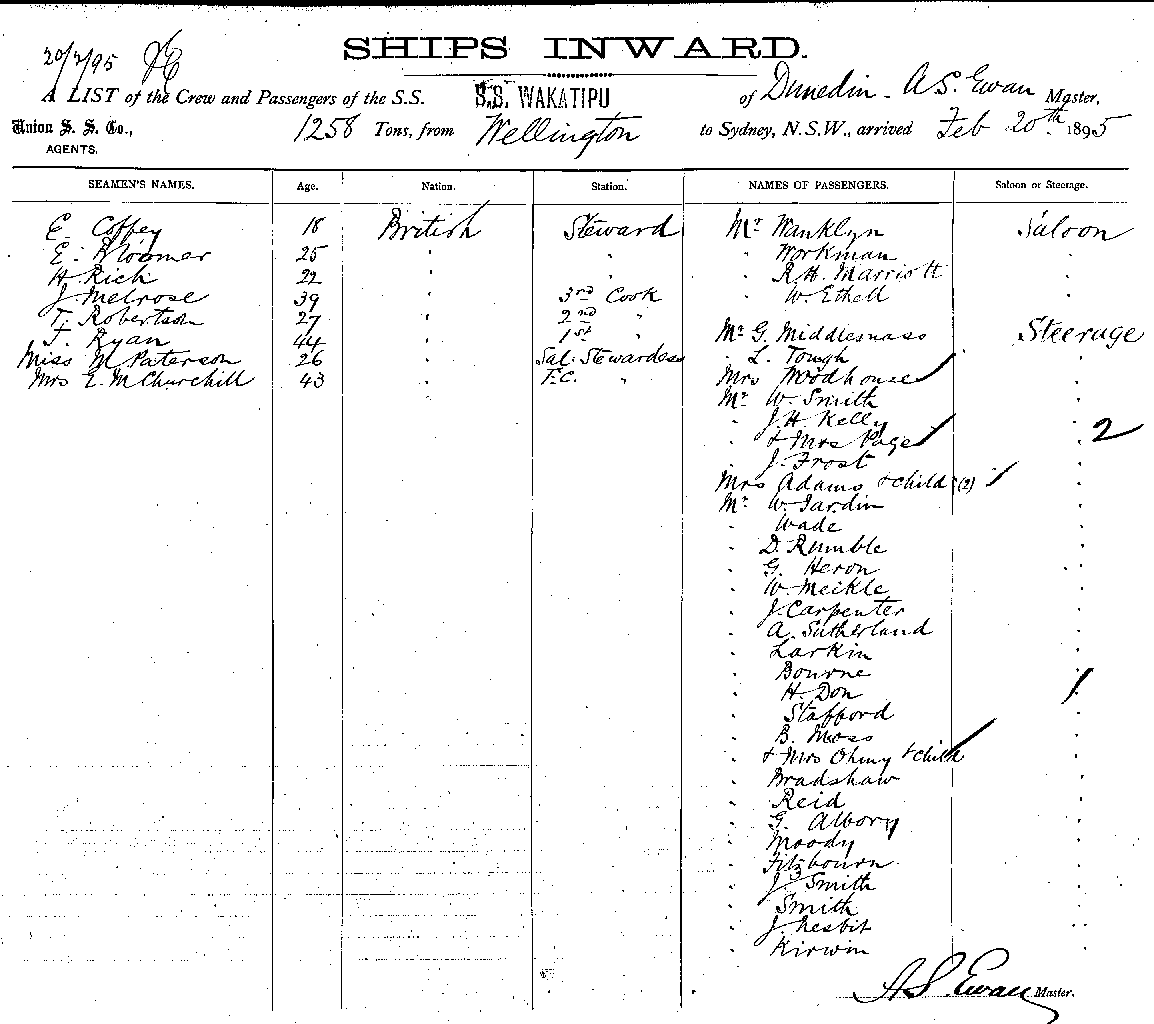 20/2/95
SHIPS INWARD.
A LIST of the Crew and Passengers of the S.S. S.S. WAKATIPU of Dunedin - A S. Ewan Master,
Union S. S. Co., 1258 Tons, from Wellington to Sydney, N.S.W., arrived Feb 20th 1895
AGENTS.
SEAMEN'S NAMES. Age. Nation. Station. NAMES OF PASSENGERS. Saloon or Steerage.
E. Coffey 18 British Steward Mr Wanklyn Saloon
E. Bloomer 25 " " " Workman "
H Rich 22 " " " R.H. Marriott "
J Melrose 39 " 3rd Cook " W. Ethell "
T. Robertson 27 " 2nd "
F. Ryan 44 " 1st " Mr G. Middlesmass Steerage
Miss M Paterson 26 " Sal. Stewardess " L. Tough "
Mrs E. McChurchill 43 " F.C. " Mrs Woodhouse "
Mr W. Smith "
" J.H. Kelly "
" & Mrs Page " 2
" J. Frost "
Mrs Adams & child (2) "
Mr W. Jardin "
" Wade "
" D. Rumble "
" G. Heron "
" W. Meikle "
" J. Carpenter "
" A. Sutherland "
" Larkin "
" Bourne "
" H. Don "
" Stafford "
" B. Moss "
" & Mrs Ohmy & child "
" Bradshaw "
" Reid "
" G. Albory "
" Moody "
" Fitzbourn "
" J. Smith "
" Smith "
" J. Nesbit "
" Kirwin "
A S. Ewan Master.